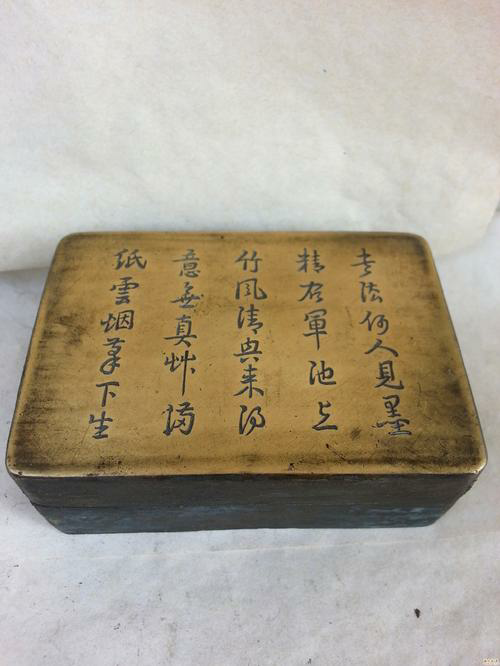 書法何人見墨
精右軍池上
竹風清興来得
意無真艸滿
紙雲烟筆下生